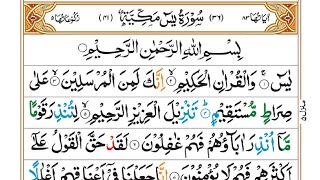 اٰيَاتُهَا ٨٣ (٣٦) سُوْرَةُ يٰسٓ مَكِّيَّةٌ (٤١) رُكُوْعَاتُهَا ٥
بِسْمِ اللّٰهِ الرَّحْمٰنِ الرَّحِيْمِ
يٰسٓ ۚ وَالْقُرْاٰنِ الْحَكِيْمِ ۙ اِنَّكَ لَمِنَ الْمُرْسَلِيْنَ ۙ عَلٰى
صِرَاطٍ مُّسْتَقِيْمٍ ؕ تَنْزِيْلَ الْعَزِيْزِ الرَّحِيْمِ ۙ لِتُنْذِرَ قَوْمًا
مَّاۤ اُنْذِرَ اٰبَآؤُهُمْ فَهُمْ غٰفِلُوْنَ لَقَدْ حَقَّ الْقَوْلُ عَلٰۤى
اَكْثَرِهِمْ فَهُمْ لَا يُؤْمِنُوْنَ اِنَّا جَعَلْنَا فِيْۤ اَعْنَاقِهِمْ اَغْلٰلًا